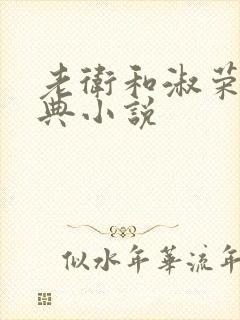 老衛和淑荣
典小说
似水年華流年